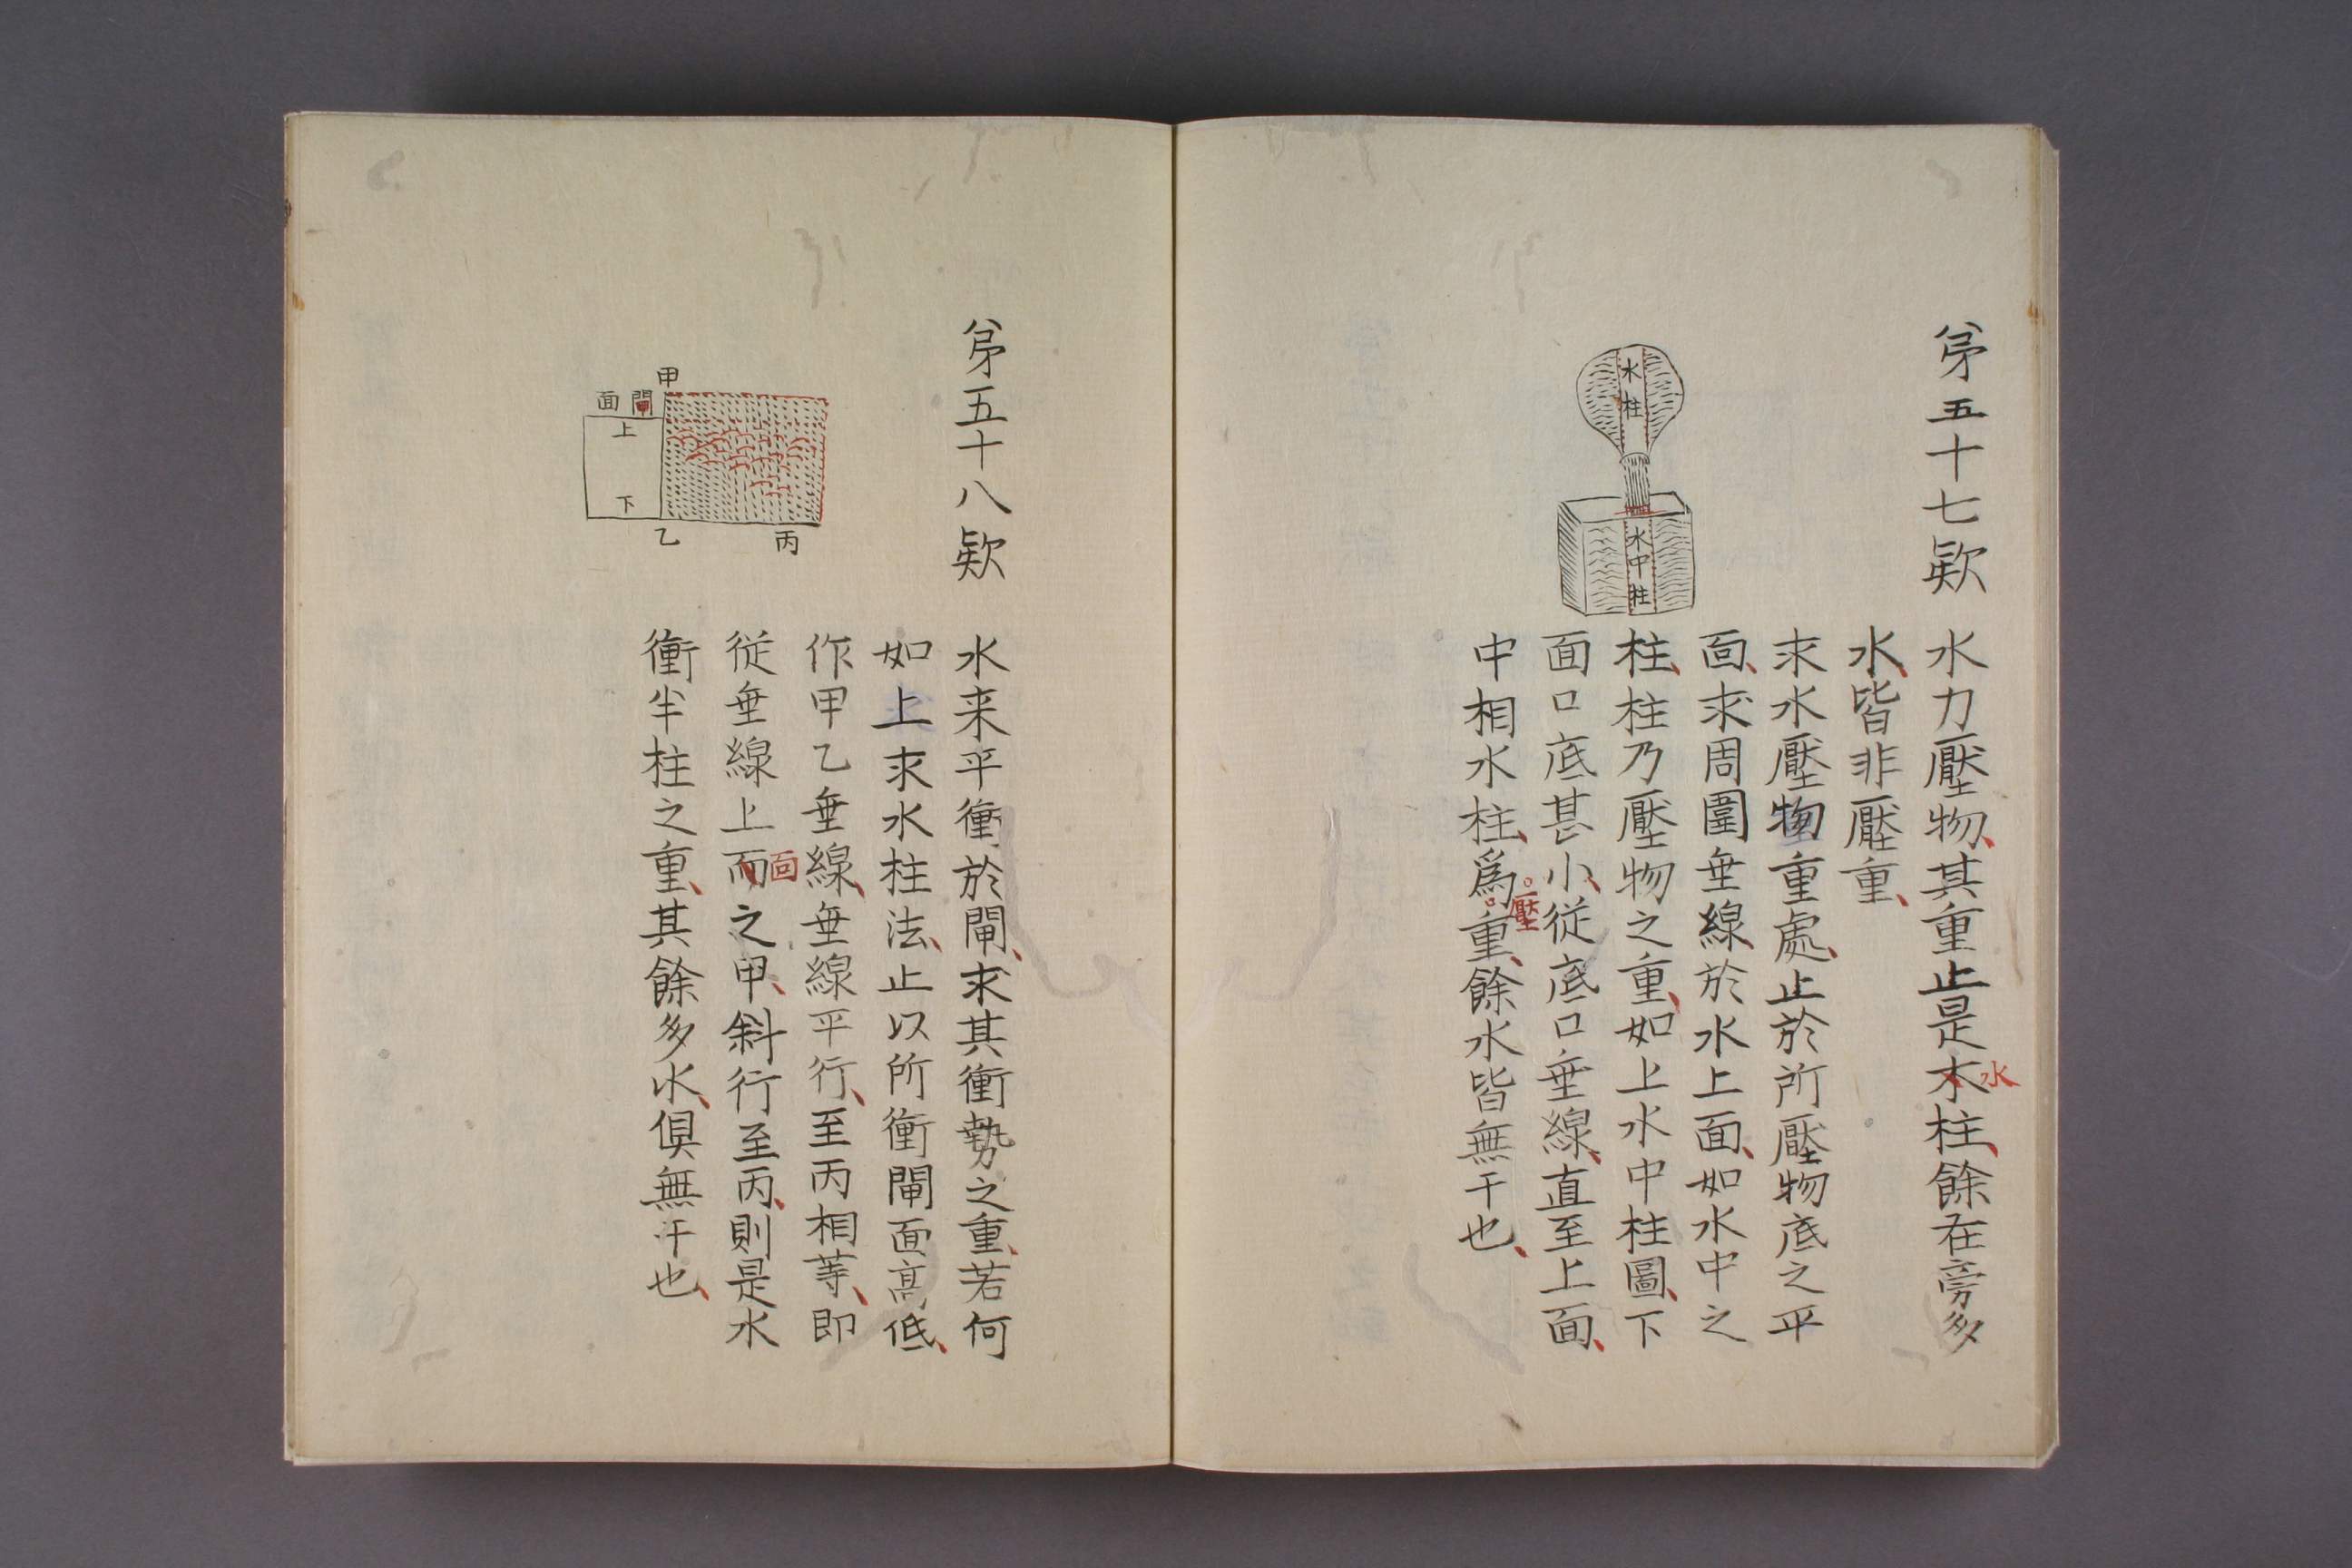 第五十七欵
水力壓物其重止是木柱餘在旁多
水
水皆非壓重
求水壓物重處止於所壓物底之平
面求周圍垂線於水上面如水中之
柱柱乃壓物之重如上水中柱圖下
面口底甚小従底口垂線直至上面
中相水柱爲重餘水皆無干也
壓
水柱
水中柱
第五十八欵
水来平衝於閘求其衝勢之重若何
如上求水柱法止以所衝閘面髙低
作甲乙垂線垂線平行至丙相等即
従垂線上而之甲斜行至丙則是水
面
衝半柱之重其餘多水俱無干也
甲
閘面
上
下
乙
丙